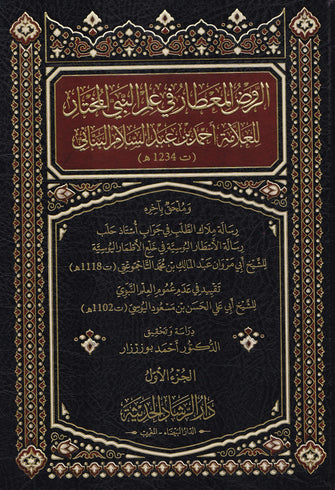 الروض المعطار في علم النبي المختار
للعلامة أحمد بن عبد السلام البناني
(ت 1234 هـ)
وملحق بآخره
رسالة ملاك الطلب في جواب أستاذ حلب
رسالة الأنتظار اليوسية في علم الأظمار اليوسية
للشيخ أبي مروان عبد المالك بن محمد التاجموعتي (ت 1118هـ)
تقييد في عدم عموم العلم النبوي
للشيخ أبي علي الحسن بن مسعود اليوسي (ت 1102هـ)
دراسة وتحقيق
الدكتور أحمد بوززار
الجزء الأول
دار الرشاد الحديثة
الدار البيضاء - المغرب